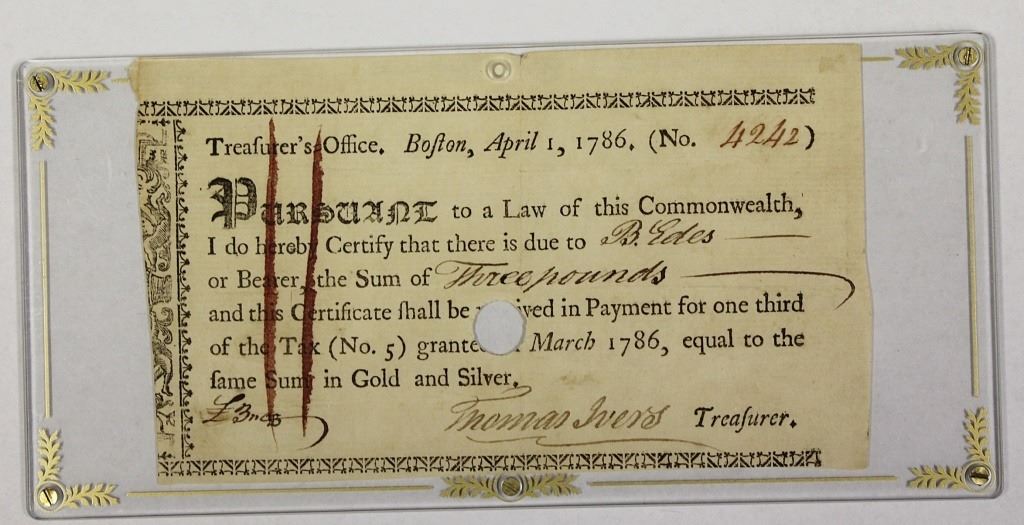 Treaſurer's Office. Boſton, April 1, 1786. (No. 4242)
PURSUANT to a Law of this Commonwealth,
I do hereby Certify that there is due to B. Edes
or Bearer, the Sum of Three pounds
and this Certificate ſhall be ived in Payment for one third
of the Tax (No. 5) grante March 1786, equal to the
ſame Sum in Gold and Silver.
£3
Thomas Ivers Treaſurer.